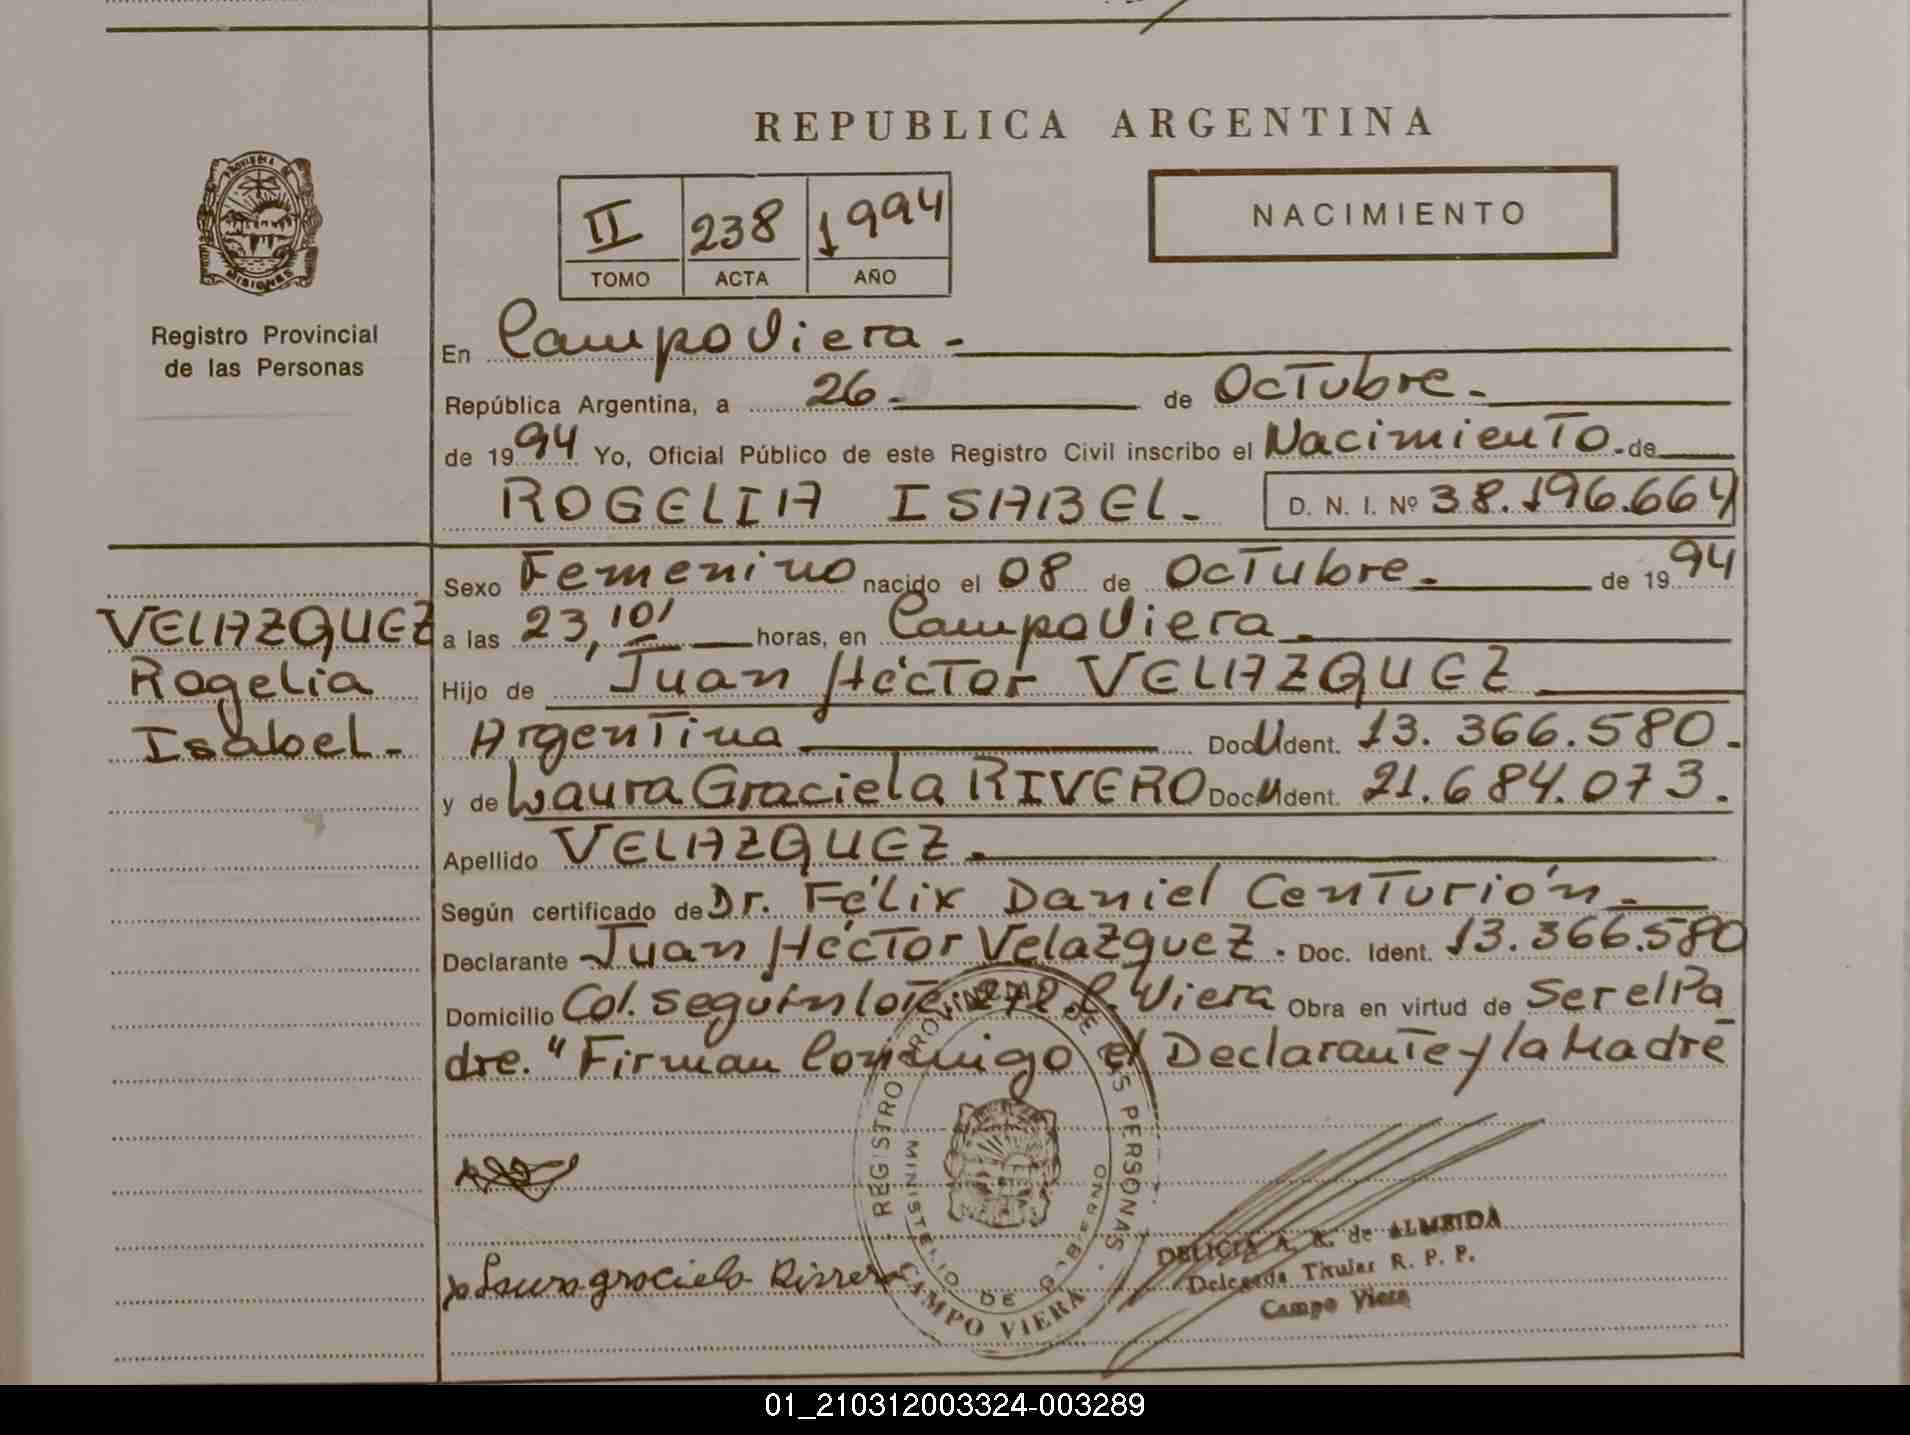 REPUBLICA ARGENTINA
NACIMIENTO
II 238 1994
TOMO ACTA AÑO
MISIONES
Registro Provincial
de las Personas
En Campo Viera -
República Argentina, a 26 - de Octubre -
de 1994 Yo, Oficial Público de este Registro Civil inscribo el Nacimiento - de
ROGELIA ISABEL - D. N. I. Nº 38.196.664
VELAZQUEZ
Rogelia
Isabel -
Sexo Femenino nacido el 08 de Octubre - de 1994
a las 23,10' horas, en Campo Viera -
Hijo de Juan Héctor VELAZQUEZ
Argentina Doc U Ident. 13. 366.580 -
y de Laura Graciela RIVERO Doc U Ident. 21.684.073.
Apellido VELAZQUEZ -
Según certificado de Dr. Félix Daniel Centurión -
Declarante Juan Héctor Velazquez. Doc. Ident. 13.366.580
Domicilio Col. Seguín lote 272 C. Viera Obra en virtud de Ser el Pa
dre. " Firman Conmigo el Declarante y la Madre
REGISTRO PROVINCIAL DE LAS PERSONAS
MINISTERIO DE GOBIERNO
CAMPO VIERA
Laura graciela Rivero
DELICIA A. R. de ALMEIDA
Delegada Titular R. P. P.
Campo Viera
01_210312003324-003289